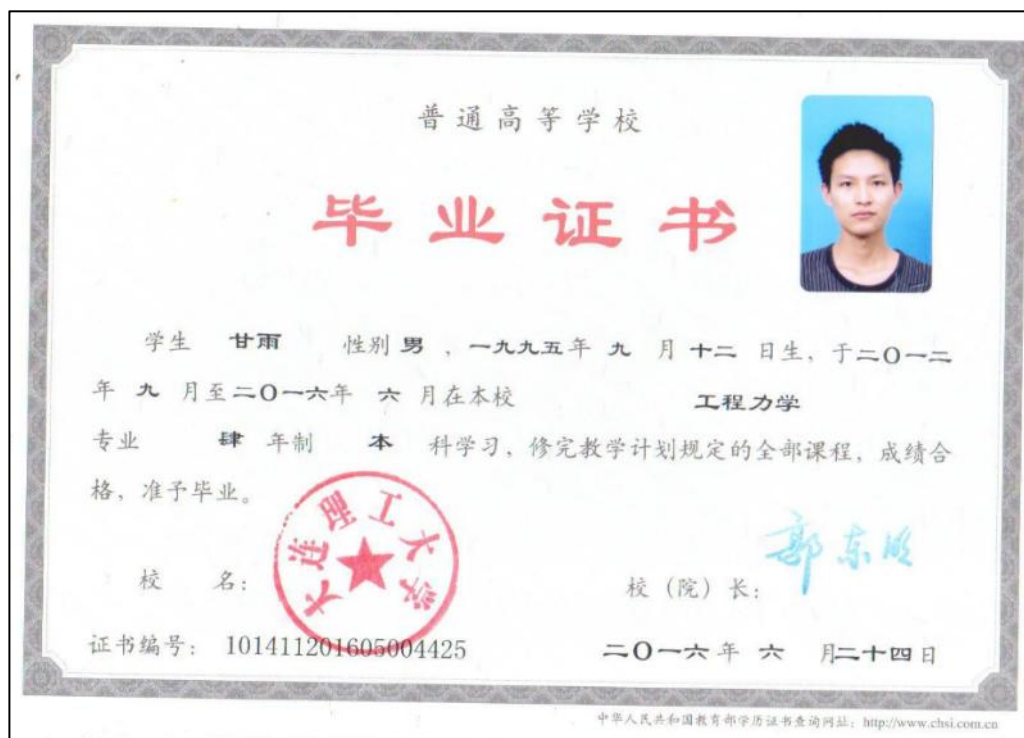 普通高等学校
毕业证书
学生 甘雨 性别 男 ，一九九五年 九 月 十二 日生，于二〇一二
年 九 月至二〇一六年 六 月在本校 工程力学
专业 肆 年制 本 科学习，修完教学计划规定的全部课程，成绩合
格，准予毕业。
大连理工大学
校 名： 校（院）长： 郭东明
证书编号： 101411201605004425 二〇一六年 六 月二十四日
中华人民共和国教育部学历证书查询网址：http://www.chsi.com.cn